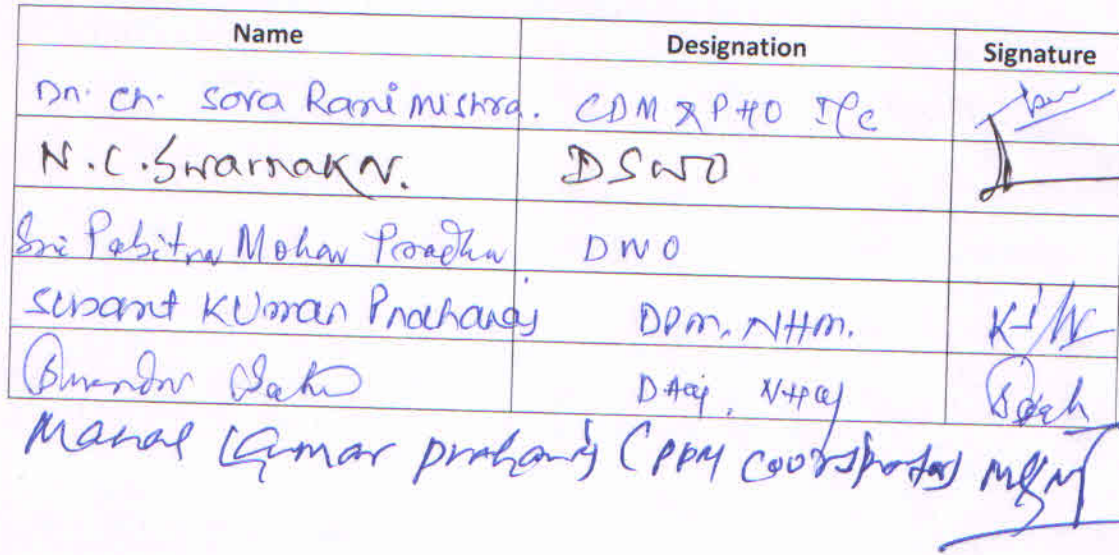 Name Designation Signature
Dr. Ch. Sova Rani Mishra. CDM & PHO I/c
N.C. Swarnak N. DSWO
Sri Pabitra Mohan Pradhan DNO
Susant Kumar Praharaj DPM, NHM.
Sahu
Kumar Praharaj (PPM Coordinator)